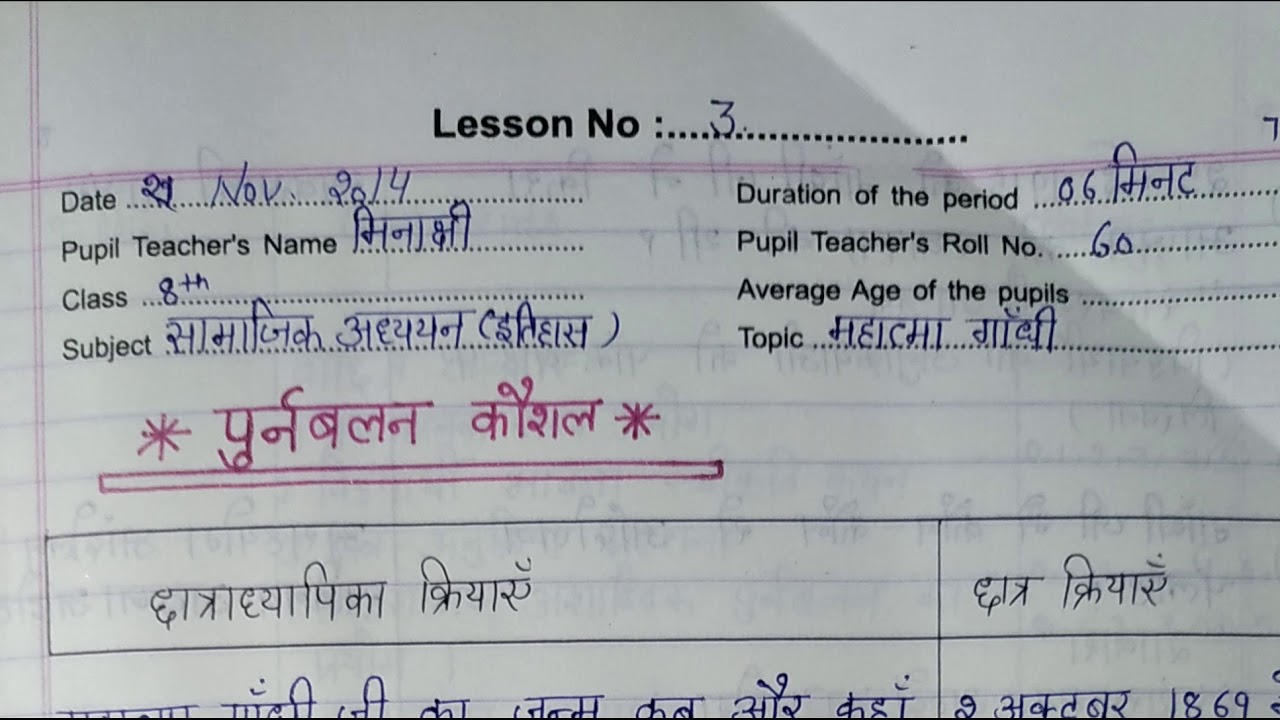 Lesson No :....3....................
7
Date ........ Nov. 2014
Duration of the period ...06 मिनट
Pupil Teacher's Name मिनाक्षी
Pupil Teacher's Roll No. ....60
Class ..8th
Average Age of the pupils
Subject सामाजिक अध्ययन (इतिहास)
Topic ..महात्मा गाँधी
* पुर्नबलन कौशल *
छात्राध्यापिका क्रियाएँ
छात्र क्रियाएँ
गाँधी जी का जन्म कब और कहाँ
2 अक्टूबर 1869